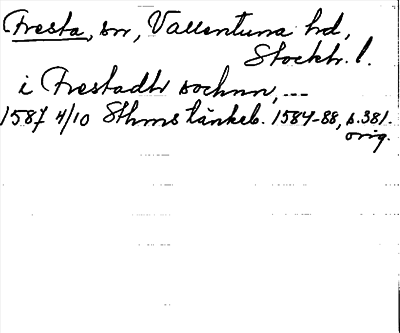 Fresta, sn, Vallentuna hd,
Stockh. l.
i Frestadh sochnn, ---
1587 4/10 Sthms tänkeb. 1584-88, s. 381.
orig.